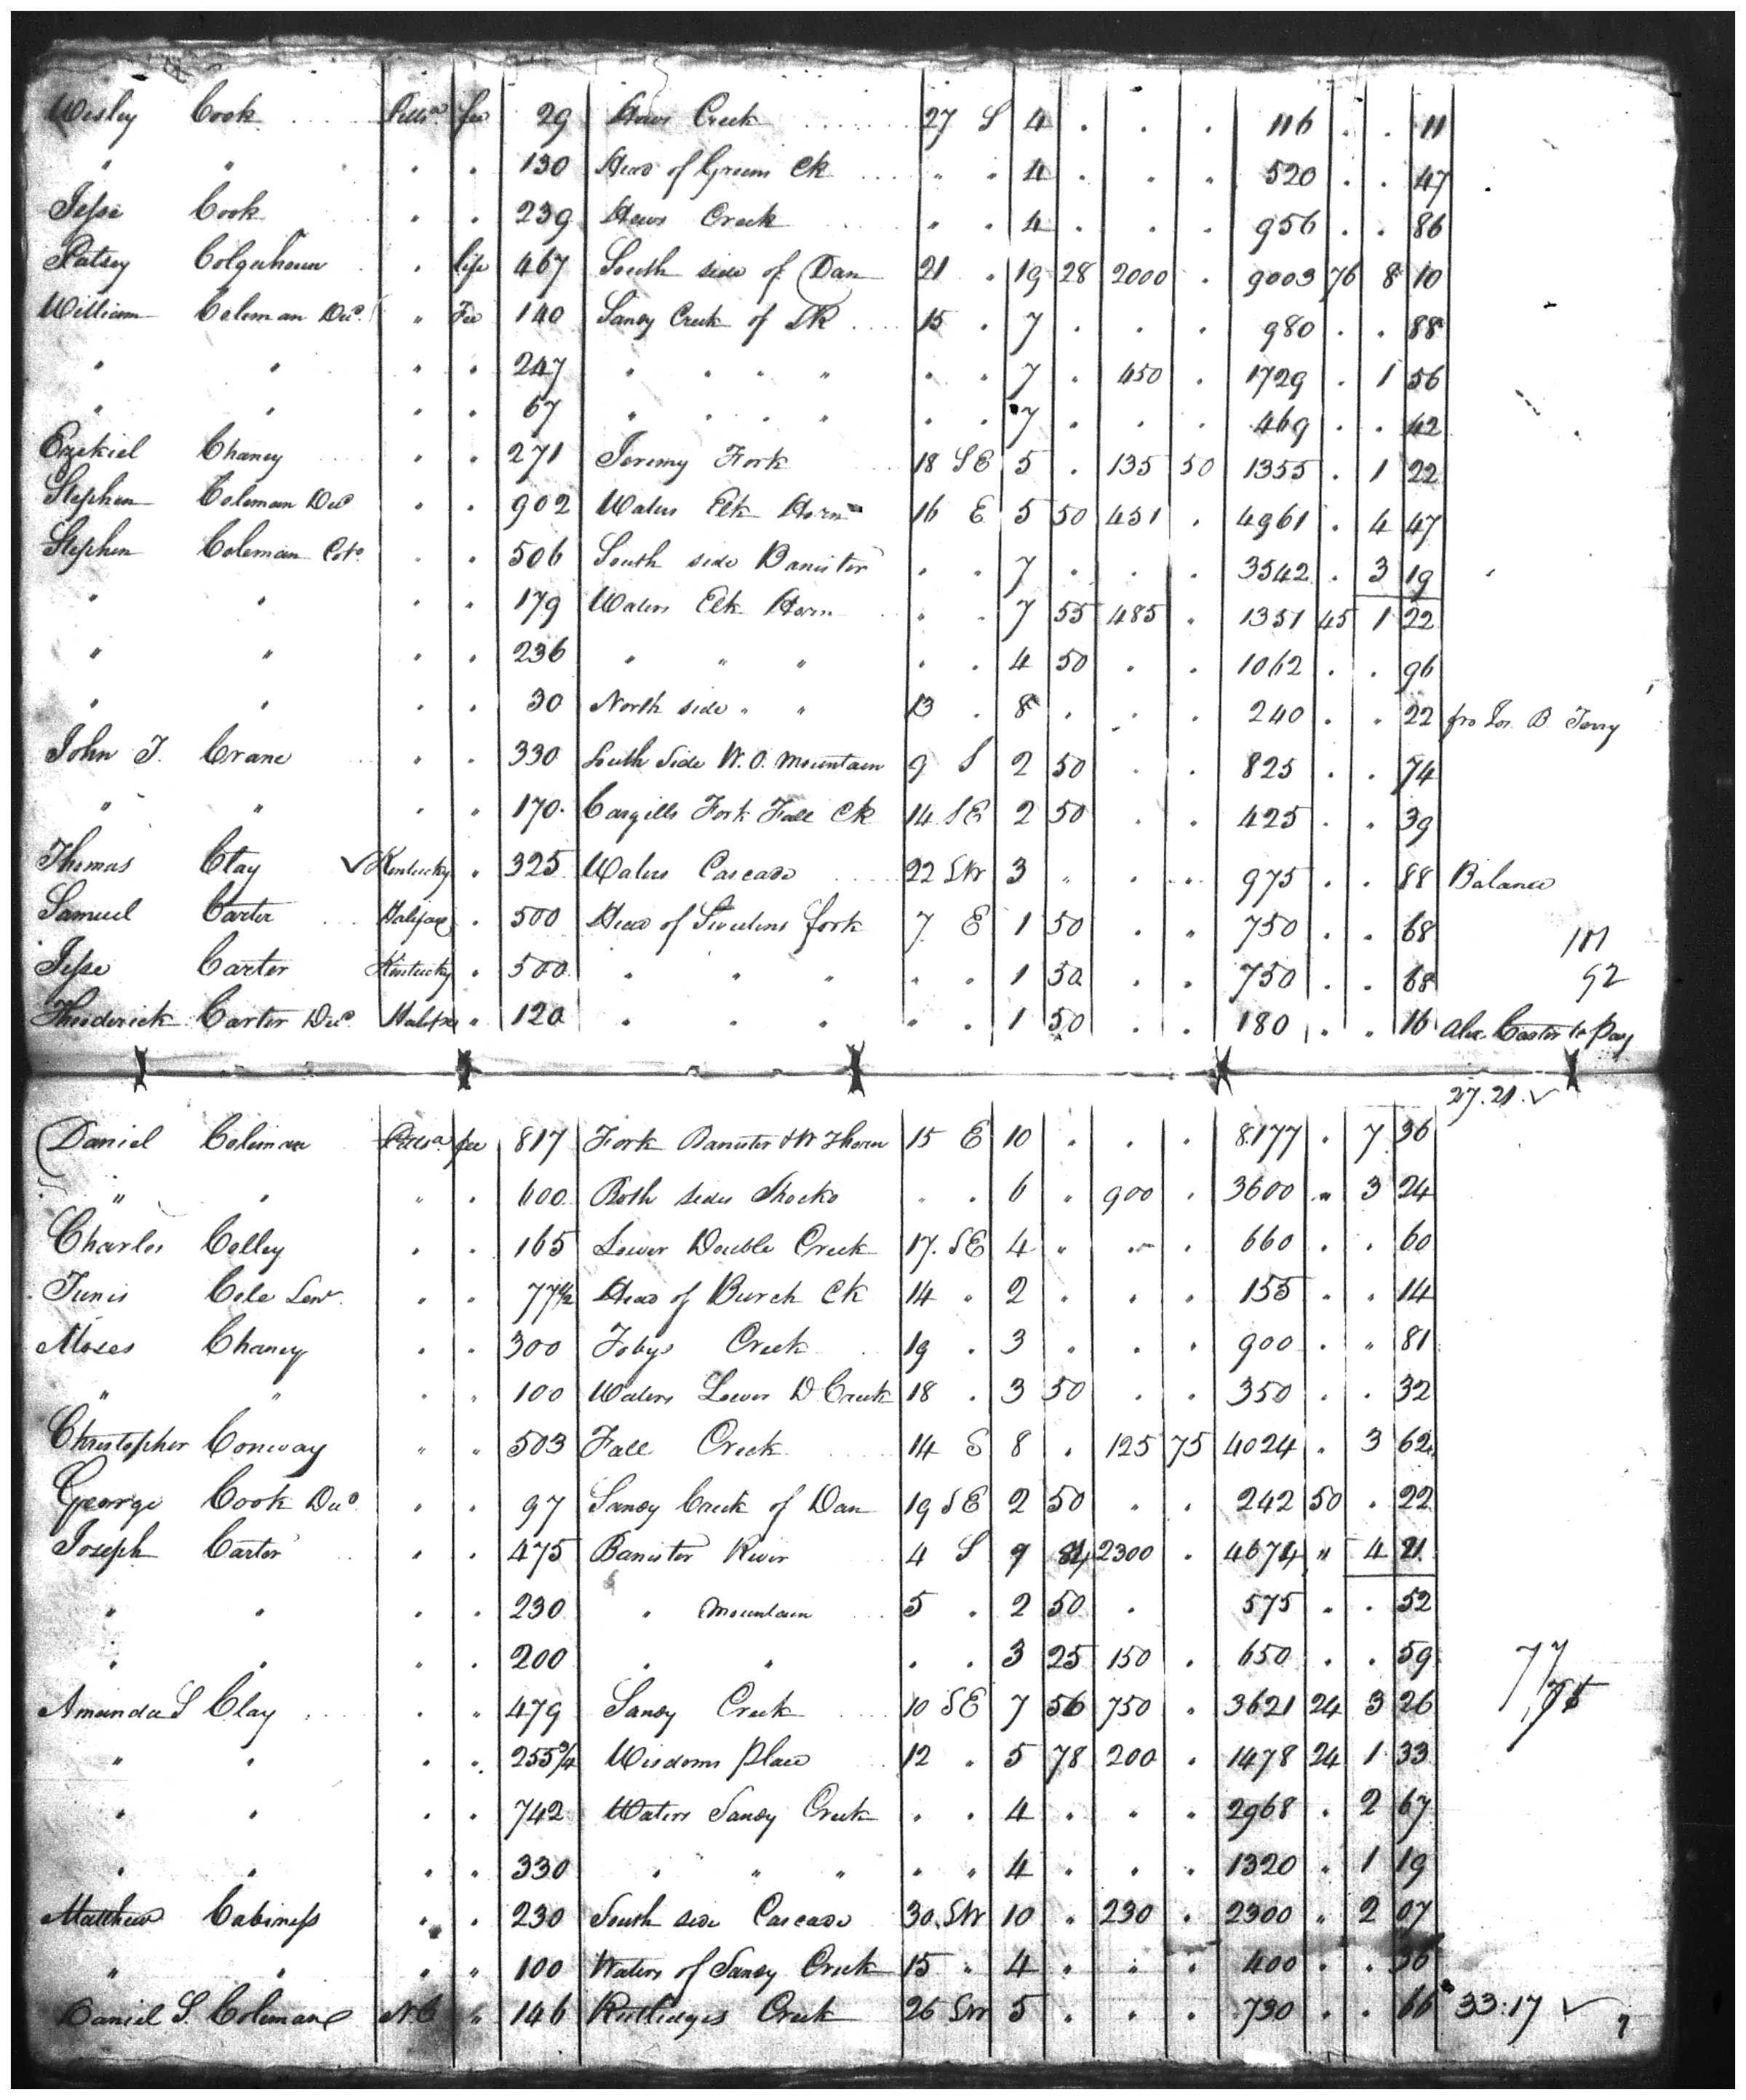 Wesley Cook Pittsa fee 29 Haws Creek 27 S 4 . . . 116 . . 11
" " . . 130 Head of Greens Ck " . 4 . . . 520 . . 47
Jesse Cook . . 239 Haws Creek " . 4 . . . 956 . . 86
Patsey Colquhoun . life 467 South side of Dan 21 . 19 28 2000 . 9003 76 8 10
William Coleman Decd " Fee 140 Sandy Creek of DR 15 . 7 . . . 980 . . 88
" " . . 247 " " " " . . 7 . 450 . 1729 . 1 56
" " . . 67 " " " " . . 7 . . . 469 . . 42
Ezekiel Chaney . . 271 Jeremy Fork 18 SE 5 . 135 50 1355 . 1 22
Stephen Coleman Decd . . 902 Waters Elk Horn 16 E 5 50 451 . 4961 . 4 47
Stephen Coleman . . 506 South side Banister . . 7 . . . 3542 . 3 19
" " . . 179 Waters Elk Horn . . 7 55 485 . 1351 45 1 22
" " . . 236 " " " . . 4 50 . . 1062 . . 96
" " . . 30 North side " " 13 . 8 . . . 240 . . 22 fro B. Terry
John T. Crane . . 330 South Side W.O. Mountain 9 S 2 50 . . 825 . . 74
" " . " 170 Cargills Fork Fall Ck 14 SE 2 50 . . 425 . . 39
Thomas Clay ✓ Kentucky . 325 Waters Cascade 22 SW 3 " . . 975 . . 88 Balance
Samuel Carter Halifax . 500 Head of Sweetens fork 7 E 1 50 . . 750 . . 68
Jesse Carter Kentucky . 500 " " " . . 1 50 . . 750 . . 68 92
Theoderick Carter Decd Halifax . 120 " " " " . 1 50 . . 180 . . 16 Alex. Carter to pay
27.21 ✓
Daniel Coleman Pittsa fee 817 Fork Banister & W Thorn 15 E 10 . . . 8177 . 7 36
" " " . 600 Both sides Shocko . . 6 " 900 . 3600 " 3 24
Charles Colley . . 165 Lower Double Creek 17. SE 4 " . . 660 . . 60
Tunis Cole Senr . . 77 1/2 Head of Burch Ck 14 " 2 . . . 155 . . 14
Moses Chaney . . 300 Tobys Creek 19 . 3 " . . 900 . " 81
" " . . 100 Waters Lower D Creek 18 . 3 50 . . 350 . . 32
Christopher Conway " " 503 Fall Creek 14 S 8 . 125 75 4024 . 3 62
George Cook Decd . . 97 Sandy Creek of Dan 19 SE 2 50 . . 242 50 . 22
Joseph Carter . . 475 Banister River 4 S 9 84 2300 . 4674 " 4 21
" " . . 230 " Mountain 5 . 2 50 . 575 . . 52
" " . . 200 " " . . 3 25 150 . 650 . . 59 77
Amanda S Clay . " 479 Sandy Creek 10 SE 7 56 750 . 3621 24 3 26
" " . . 255 3/4 Wisdoms place 12 . 5 78 200 . 1478 24 1 33
" " . . 742 Waters Sandy Creek . . 4 . . . 2968 . 2 67
" " . . 330 " " " . . 4 . . . 1320 . 1 19
Matthew Cabiness . . 230 South side Cascade 30 SW 10 " 230 . 2300 " 2 07
" " " " 100 Waters of Sandy Creek 15 " 4 . . . 400 . . 36
Daniel S. Coleman N.C " 146 Rutledges Creek 26 SW 5 . . . 730 . . 66 33:17 ✓